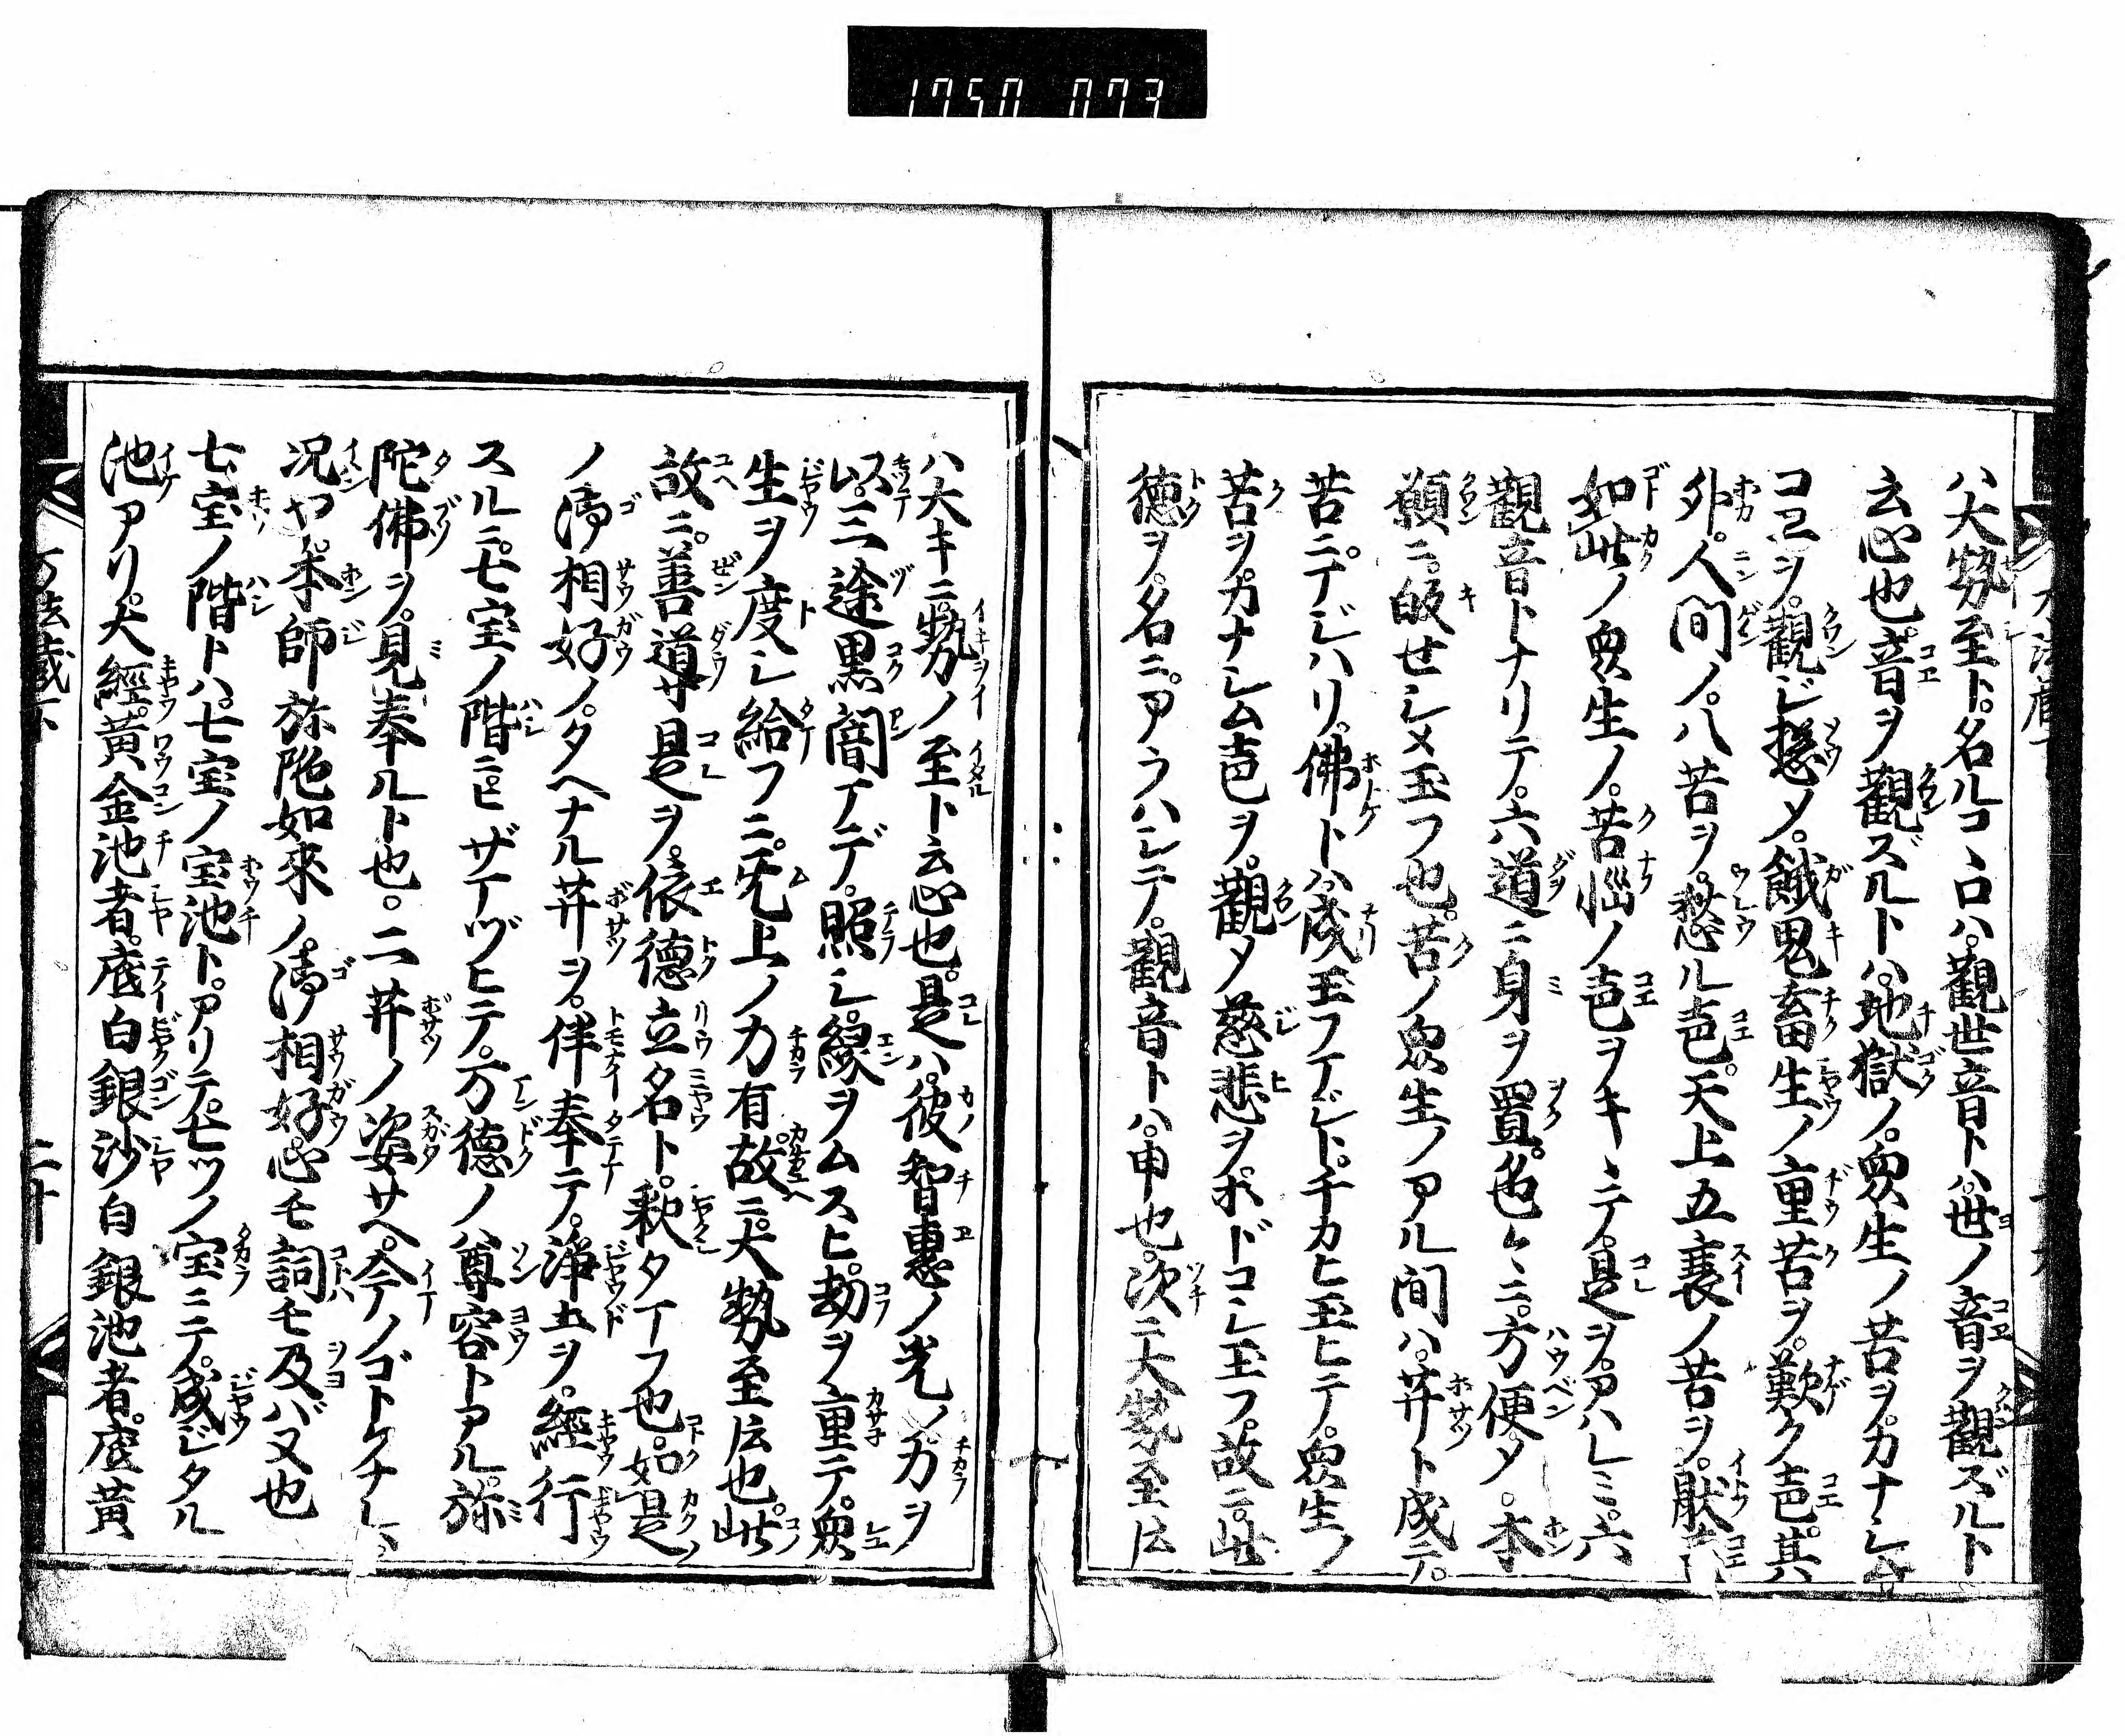 1750 073
ハ大勢至ト。名ルコヽロハ。觀世音トハ。世ノ音ヲ觀ズルト
云心也。音ヲ觀ズルトハ。地獄ノ。衆生ノ苦ヲ。カナシム
コヱヲ。觀ジ搃メ。餓鬼畜生ノ重苦ヲ。歎ク声。其ハ
外。人間ノ。八苦ヲ。愁ル声。天上五衰ノ苦ヲ。厭
如此ノ衆生ノ。苦惱ノ声ヲキヽテ。是ヲ。アハレミ。六
觀音トナリテ。六道ニ身ヲ置。色〻ニ。方便〆。本
願ニ。皈セシメ玉フ也。苦ノ衆生ノアル間ハ。𦬇ト成テ。
苦ニ。マジハリ。佛トハ。成玉フマジト。千カヒ玉ヒテ。衆生ノ
苦ヲ。カナシム声ヲ。觀〆慈悲ヲ。ホドコシ玉フ。故ニ。此
德ヲ。名ニ。アラハシテ。觀音トハ。申也。次ニ大勢至ト
ハ大キニ。勢ノ至ト云心也。是ハ。彼智惠ノ光ノ力ヲ
以。三途黒闇マデ。照シ。縁ヲムスヒ。劫ヲ重テ。衆
生ヲ度シ給フニ。無上ノ力有故ニ。大勢至ト云也。此
故ニ。善導サ是ヲ。依德立名ト。釈タマフ也。如是
ノ御相好ノ。タヘナル𦬇ヲ。伴奉テ。浄土ヲ。經行
スルニ。七宝ノ階ニ。ヒザマヅヒテ。万德ノ尊容トアル。弥
陀佛ヲ。見奉ルト也。二𦬇ノ姿サヘ。今ノゴトクナレハ
况ヤ。本師弥陀如來ノ。御相好。心モ詞モ及バヌ也
七宝ノ階トハ。七宝ノ宝池ト。アリテ。七ツノ宝ニテ。成ジタル
池アリ。大經。黄金池者。底白銀沙白銀池者。底黄